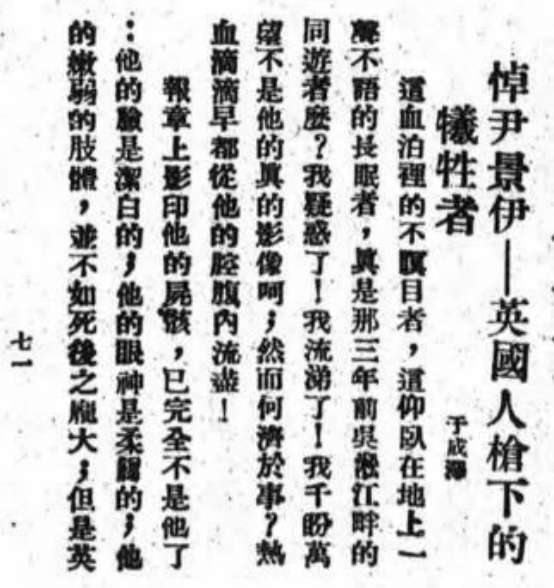 悼尹景伊—英國人槍下的
犧牲者
于成澤
這血泊裡的不瞑目者，這仰臥在地上一
聲不語的長眠者，眞是那三年前吳淞江畔的
同遊者麽？我疑惑了！我流涕了！我千盼萬
望不是他的眞的影像呵；然而何濟於事？熱
血滴滴早都從他的腔腹內流盡！
報章上影印他的屍骸，已完全不是他了
：他的臉是潔白的；他的眼神是柔韻的；他
的嫩弱的肢體，並不如死後之龐大；但是英
七一